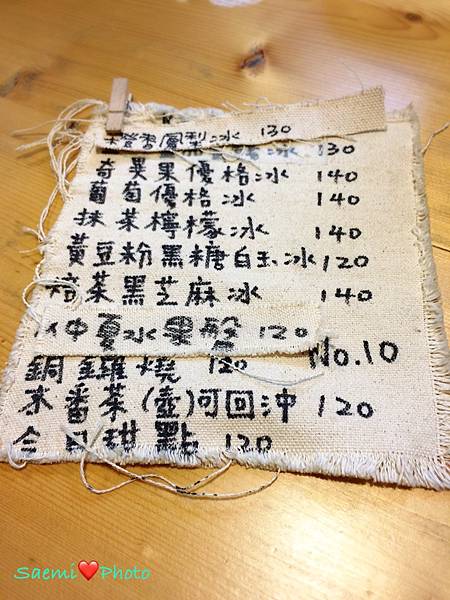 鳳梨冰 130
冰 130
奇異果優格冰 140
葡萄優格冰 140
抹茶檸檬冰 140
黃豆粉黑糖白玉冰 120
焙茶黑芝麻冰 140
仲夏水果盤 120
No.10
銅鑼燒 120
来番茶(壺)可回沖 120
今日甜點 120
Saemi❤Photo